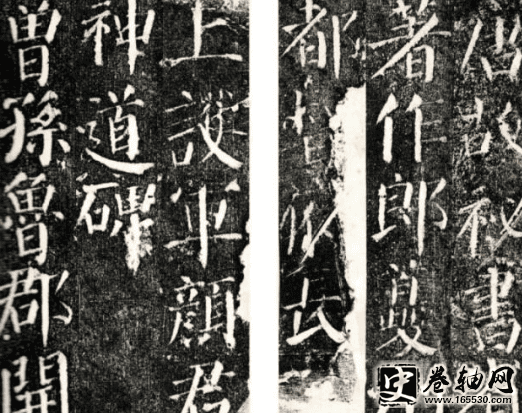 唐故秘書
著作郎夔
都督府長
上護軍顏君
神道碑
曾孫魯郡開
卷轴网
www.165530.com